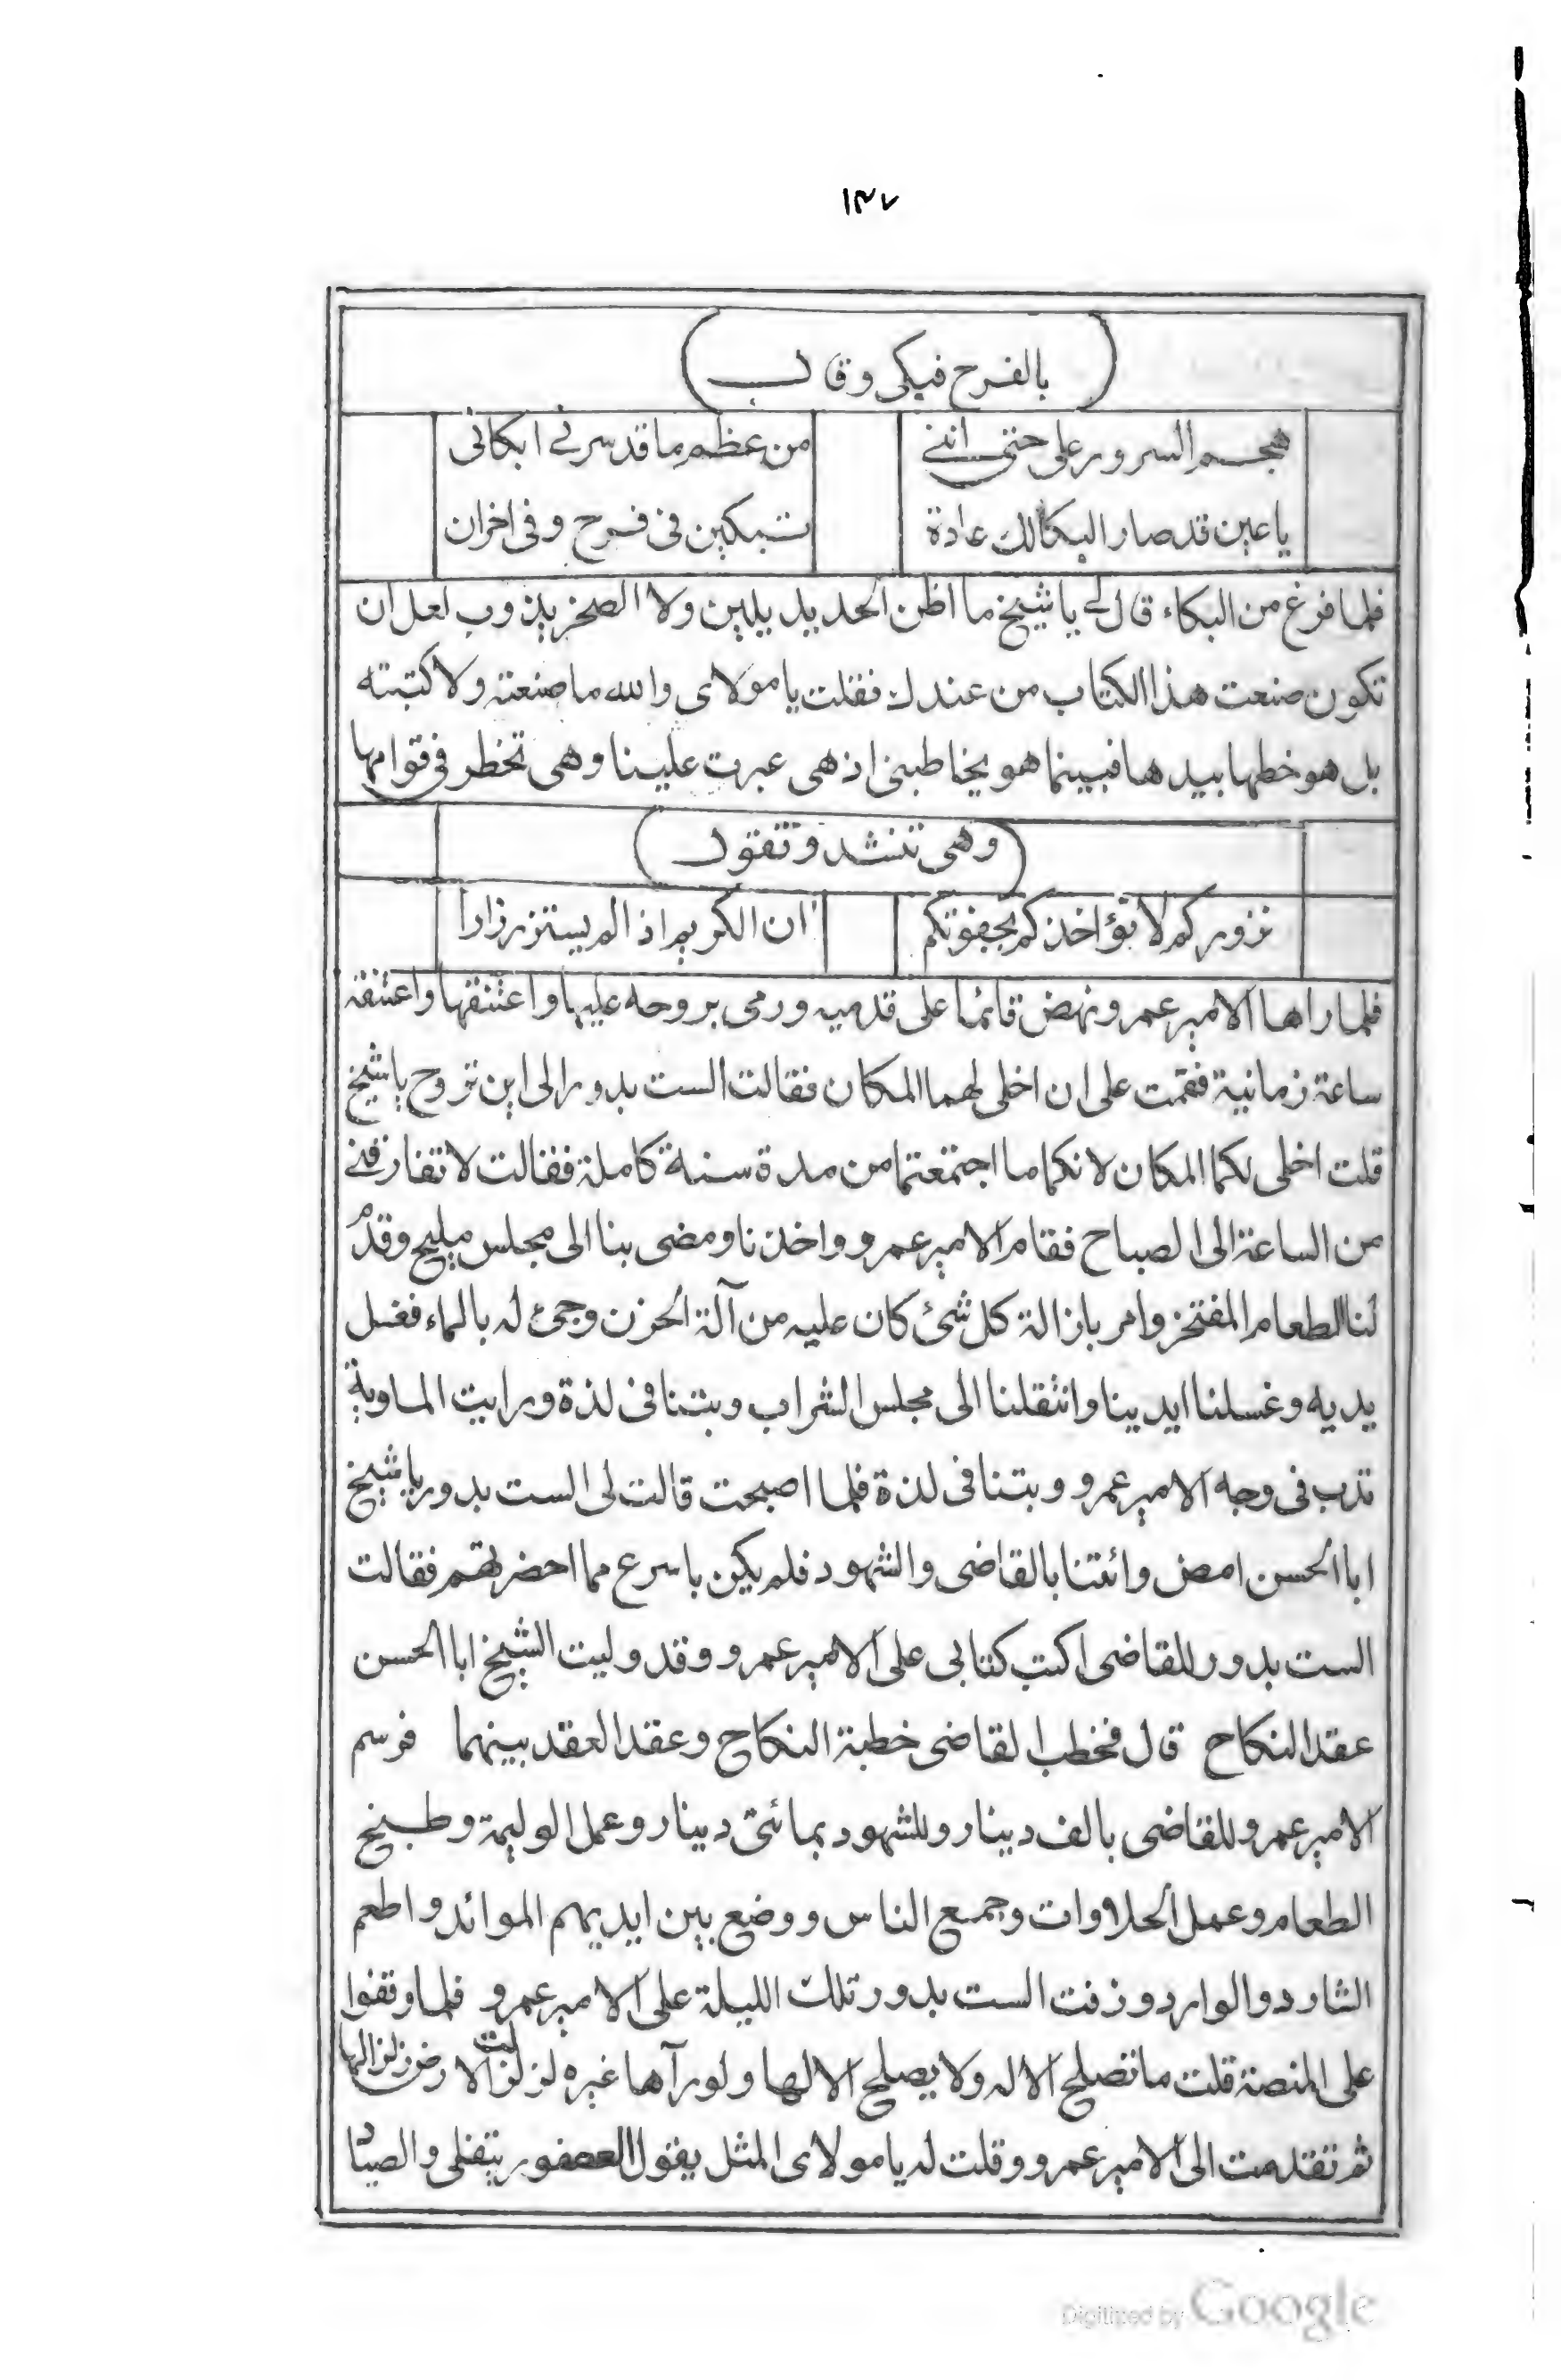 ١٣٧
بالفرح فبكى وقال
هجم السرور على حتى اننى من عظم ما قد سرنى ابكانى
يا عين قد صار البكا لك عادة تبكين فى فرح وفى احزان
فلما فرغ من البكاء قال لى يا شيخ ما اظن الحديد يلين ولا الصخر يذوب لعل ان
تكون صنعت هذا الكتاب من عندك فقلت يا مولاى والله ما صنعته ولا كتبته
بل هو خطها بيدها فبينما هو يخاطبنى اذ هى عبرت علينا وهى تخطر فى قوامها
وهى تنشد وتقول
نزوركم لا نؤاخذكم بجفوتكم ان الكريم اذا لم يستزر زارا
فلما راها الامير عمرو نهض قائما على قدميه ورمى بروحه عليها واعتنقها واعتنقته
ساعة زمانية فقمت على ان اخلى لهما المكان فقالت الست بدور الى اين تروح يا شيخ
قلت اخلى لكما المكان لانكما ما اجتمعتما من مدة سنة كاملة فقالت لا تفارقنى
من الساعة الى الصباح فقام الامير عمرو واخذنا ومضى بنا الى مجلس مليح وقدم
لنا الطعام المفتخر وامر بازالة كل شئ كان عليه من آلة الحزن وجئ له بالماء فغسل
يديه وغسلنا ايدينا وانتقلنا الى مجلس الشراب وبتنا فى لذة ورايت الماوية
تدب فى وجه الامير عمرو وبتنا فى لذة فلما اصبحت قالت لى الست بدور يا شيخ
ابا الحسن امض وائتنا بالقاضى والشهود فلم يكن باسرع مما احضرتهم فقالت
الست بدور للقاضى اكتب كتابى على الامير عمرو وقد وليت الشيخ ابا الحسن
عقد النكاح قال فخطب القاضى خطبة النكاح وعقد العقد بينهما فرسم
الامير عمرو للقاضى بالف دينار وللشهود بمائتى دينار وعمل الوليمة وطبخ
الطعام وعمل الحلاوات وجمع الناس ووضع بين ايديهم الموائد واطعم
الشارد والوارد وزفت الست بدور تلك الليلة على الامير عمرو فلما وقفوا
على المنصة قلت ما تصلح الا له ولا يصلح الا لها ولو رآها غيره لزلزلت الارض زلزالها
ثم تقدمت الى الامير عمرو وقلت له يا مولاى المثل يقول العصفور يتفلى والصياد
Digitized by Google